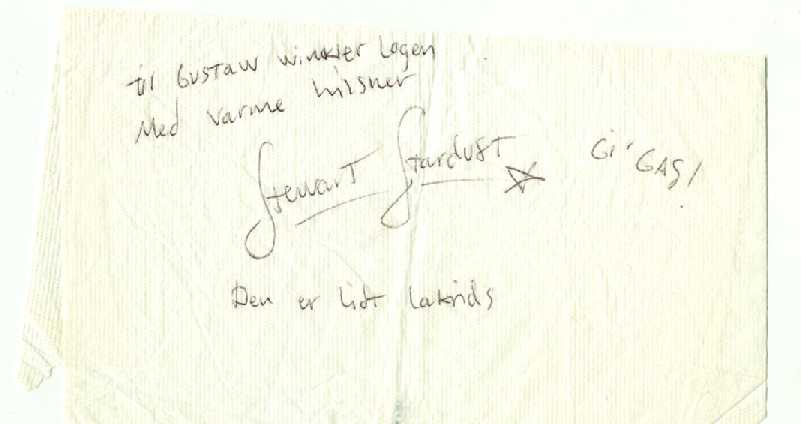 til Gustav Winkler Logen
Med varme hilsner
Stewart Stardust
Gi' GAS!
Den er lidt lakrids